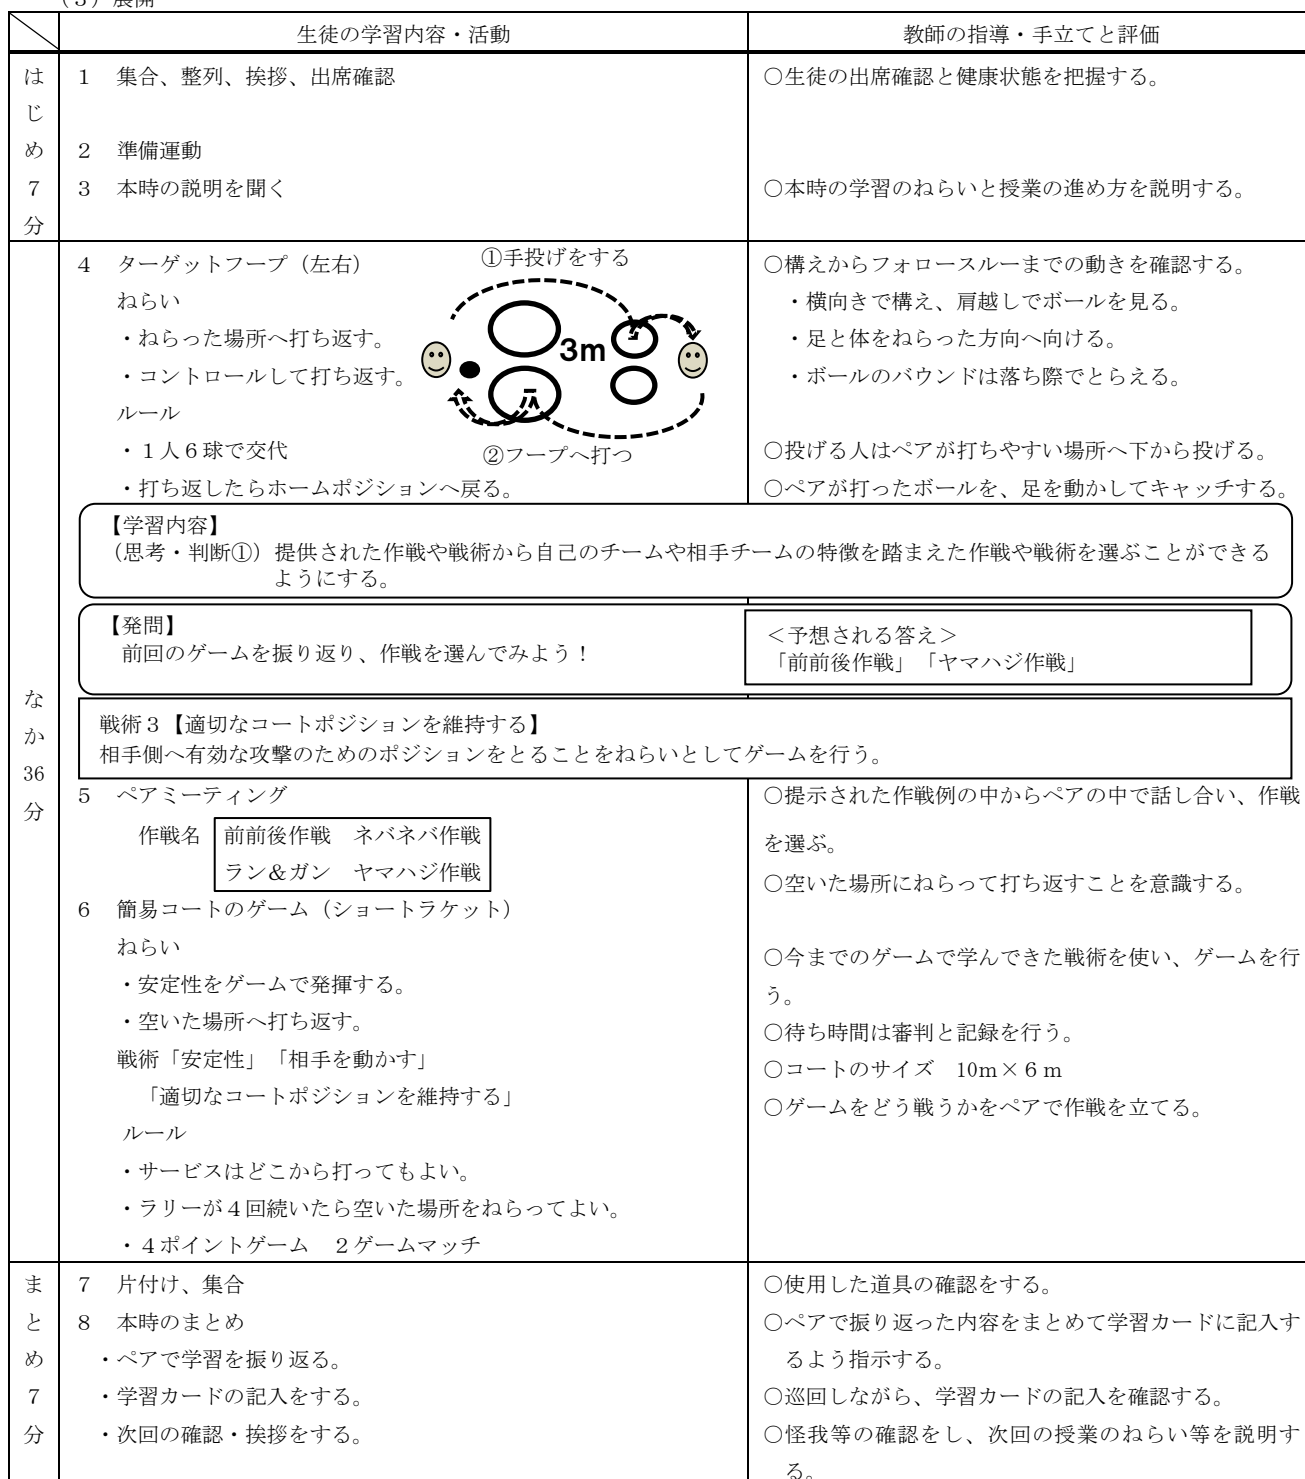 （３）展開
生徒の学習内容・活動
教師の指導・手立てと評価
はじめ７分
１　集合、整列、挨拶、出席確認
○生徒の出席確認と健康状態を把握する。
２　準備運動
３　本時の説明を聞く
○本時の学習のねらいと授業の進め方を説明する。
なか36分
４　ターゲットフープ（左右）
ねらい
・ねらった場所へ打ち返す。
・コントロールして打ち返す。
ルール
・１人６球で交代
・打ち返したらホームポジションへ戻る。
①手投げをする
3m
②フープへ打つ
○構えからフォロースルーまでの動きを確認する。
・横向きで構え、肩越しでボールを見る。
・足と体をねらった方向へ向ける。
・ボールのバウンドは落ち際でとらえる。
○投げる人はペアが打ちやすい場所へ下から投げる。
○ペアが打ったボールを、足を動かしてキャッチする。
【学習内容】
（思考・判断①）提供された作戦や戦術から自己のチームや相手チームの特徴を踏まえた作戦や戦術を選ぶことができる
ようにする。
【発問】
前回のゲームを振り返り、作戦を選んでみよう！
＜予想される答え＞
「前前後作戦」「ヤマハジ作戦」
戦術３【適切なコートポジションを維持する】
相手側へ有効な攻撃のためのポジションをとることをねらいとしてゲームを行う。
５　ペアミーティング
作戦名
前前後作戦　ネバネバ作戦
ラン＆ガン　ヤマハジ作戦
６　簡易コートのゲーム（ショートラケット）
ねらい
・安定性をゲームで発揮する。
・空いた場所へ打ち返す。
戦術「安定性」「相手を動かす」
「適切なコートポジションを維持する」
ルール
・サービスはどこから打ってもよい。
・ラリーが４回続いたら空いた場所をねらってよい。
・４ポイントゲーム　２ゲームマッチ
○提示された作戦例の中からペアの中で話し合い、作戦
を選ぶ。
○空いた場所にねらって打ち返すことを意識する。
○今までのゲームで学んできた戦術を使い、ゲームを行
う。
○待ち時間は審判と記録を行う。
○コートのサイズ　10m×６m
○ゲームをどう戦うかをペアで作戦を立てる。
まとめ７分
７　片付け、集合
８　本時のまとめ
・ペアで学習を振り返る。
・学習カードの記入をする。
・次回の確認・挨拶をする。
○使用した道具の確認をする。
○ペアで振り返った内容をまとめて学習カードに記入す
るよう指示する。
○巡回しながら、学習カードの記入を確認する。
○怪我等の確認をし、次回の授業のねらい等を説明す
る。